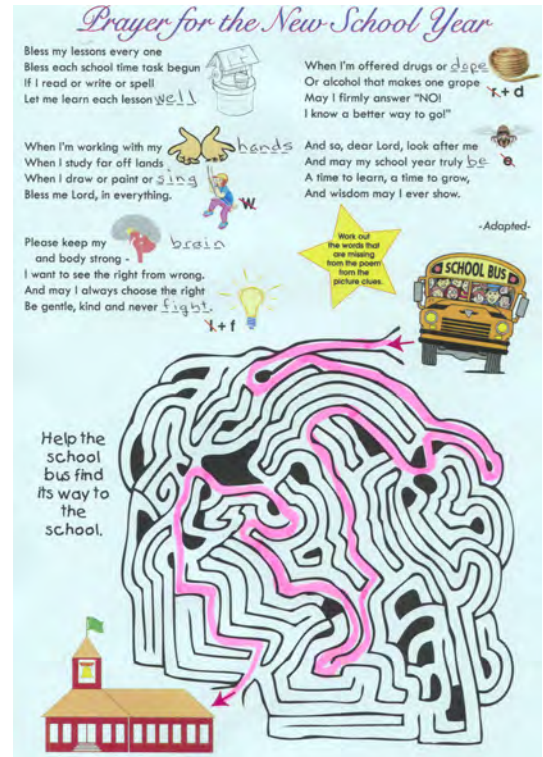 Prayer for the New School Year
Bless my lessons every one
Bless each school time task begun
If I read or write or spell
Let me learn each lesson well
When I'm working with my hands
When I study far off lands
When I draw or paint or sing
Bless me Lord, in everything.
w
Please keep my brain
and body strong -
I want to see the right from wrong.
And may I always choose the right
Be gentle, kind and never fight.
l + f
When I'm offered drugs or dope
Or alcohol that makes one grope
May I firmly answer "NO!
I know a better way to go!"
r + d
And so, dear Lord, look after me
And may my school year truly be
A time to learn, a time to grow,
And wisdom may I ever show.
e
-Adapted-
Work out
the words that
are missing
from the poem
from the
picture clues.
SCHOOL BUS
Help the
school
bus find
its way to
the
school.